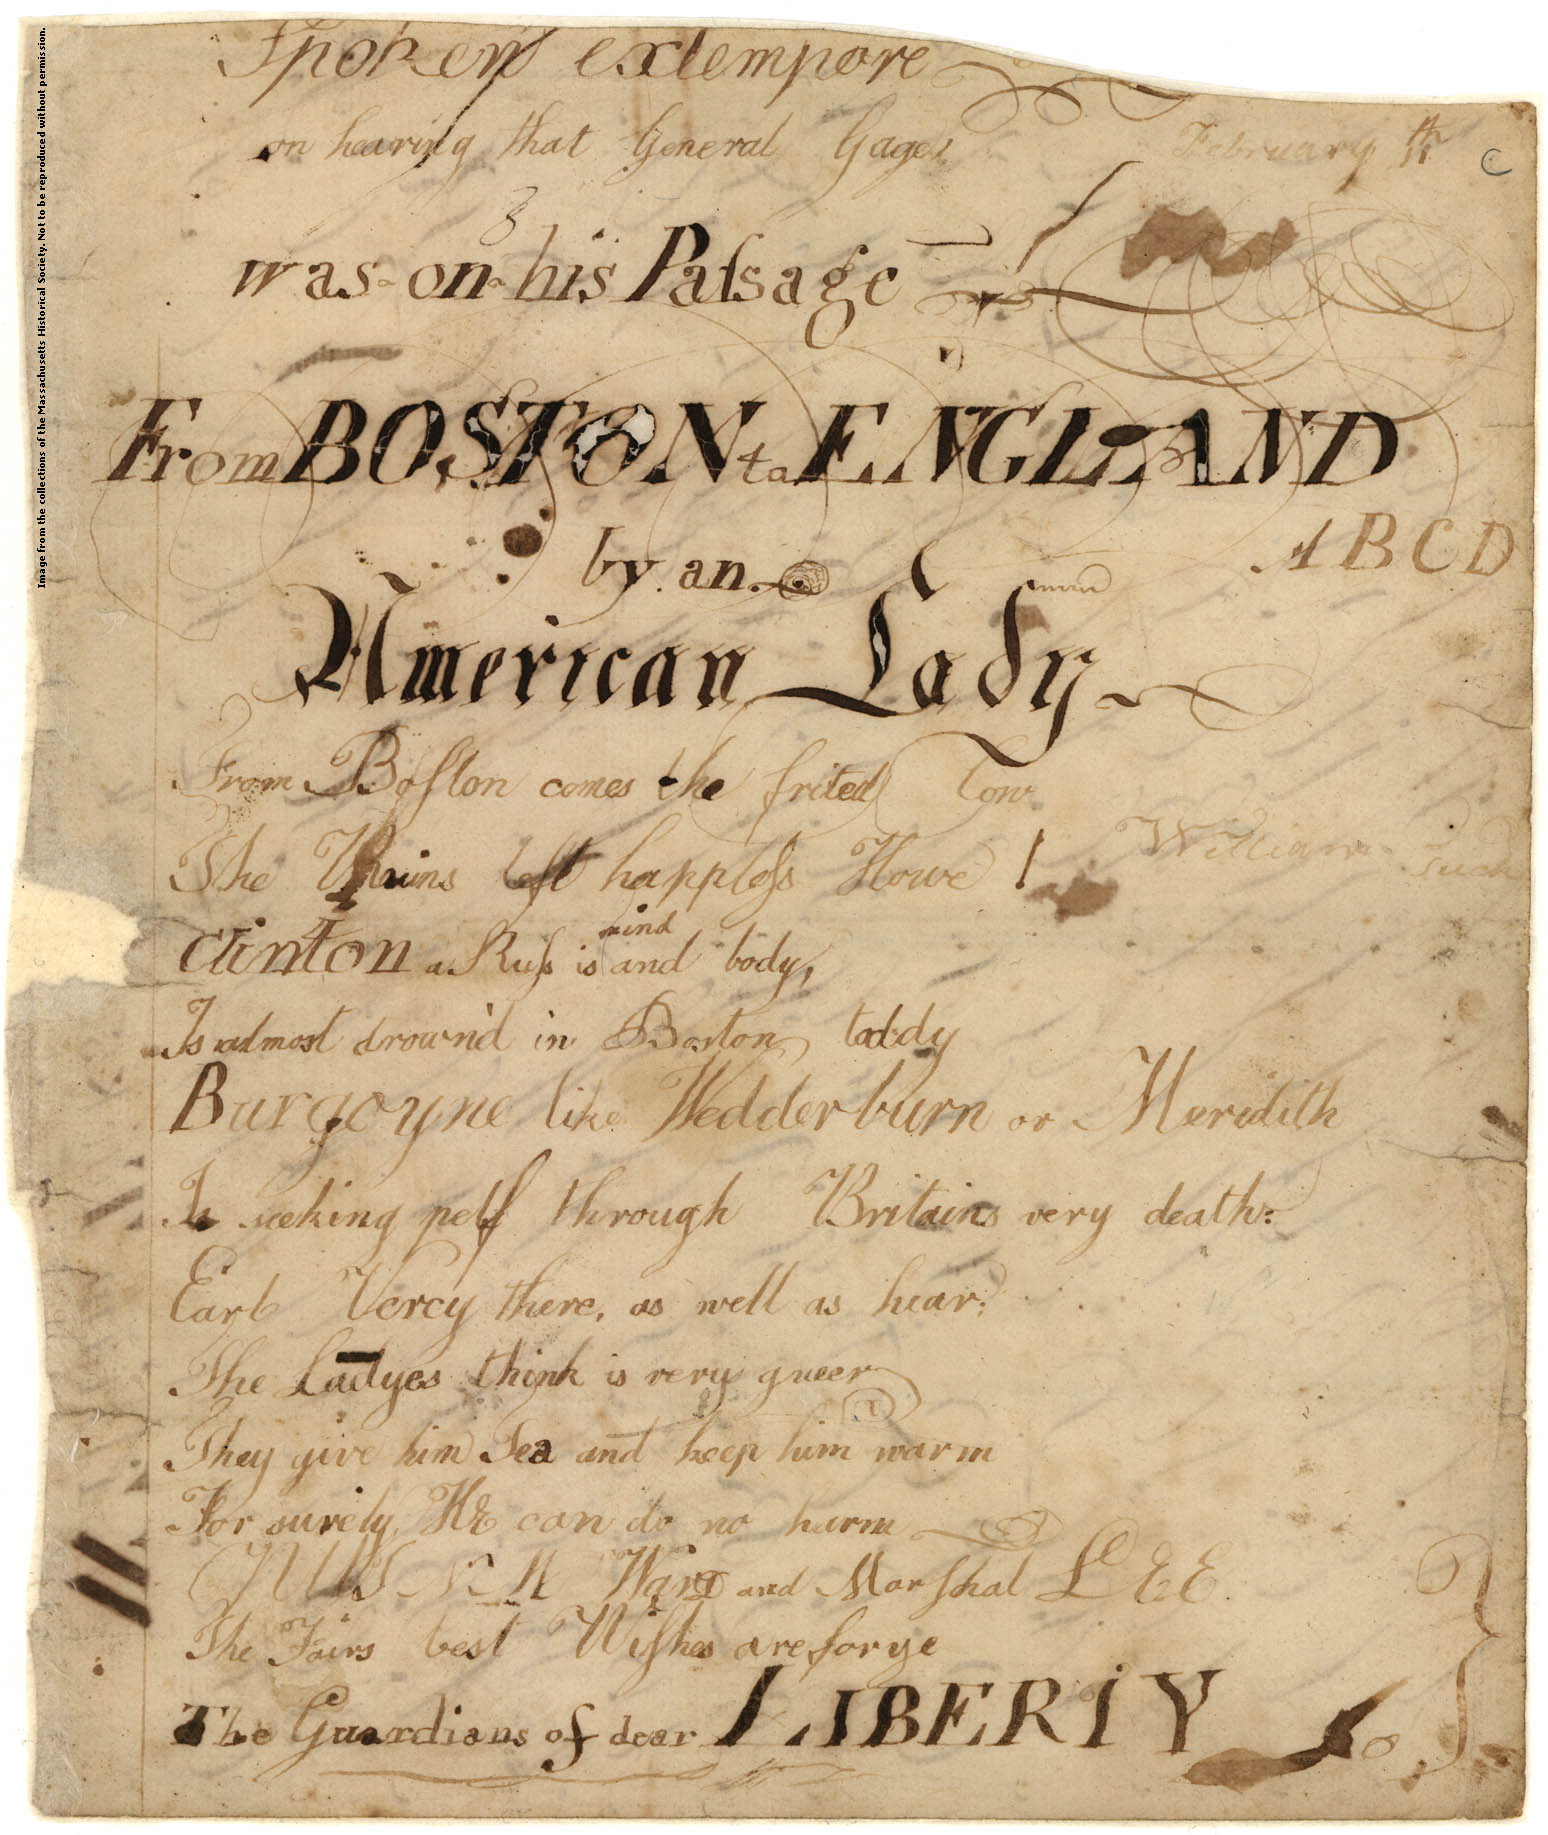 Spoken extempore
on hearing that General Gage
February
was-on-his Paſsage
From BOSTON to ENGLAND
by an
A B C D
American Lady
From Boſton comes the frited Cow
The Ruins left happleſs Howe !
William Tuck
Clinton a Ruſs is mind and body,
Is almost drown'd in Boston toddy
Burgoyne like Wedderburn or Meridith
Is seeking pelf through Britains very death:
Earl Percy there, as well as hear:
The Ladyes think is very queer
They give him Tea and keep him warm
For surely He can do no harm
Ward and Marſhal LEE
The Fairs best Wiſhes are for ye
The Guardians of dear LIBERTY
Image from the collections of the Massachusetts Historical Society. Not to be reproduced without permission.